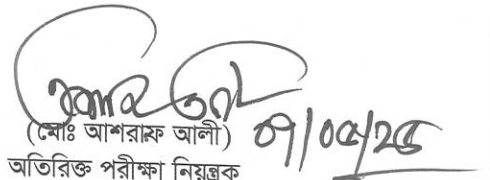 (মোঃ আশরাফ আলী) ০৭/০৫/২৫
অতিরিক্ত পরীক্ষা নিয়ন্ত্রক